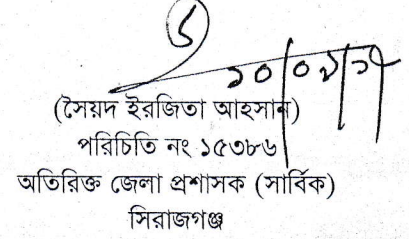 ১০/০৯/১৭
(সৈয়দ ইরজিতা আহসান)
পরিচিতি নং ১৫৩৮৬
অতিরিক্ত জেলা প্রশাসক (সার্বিক)
সিরাজগঞ্জ